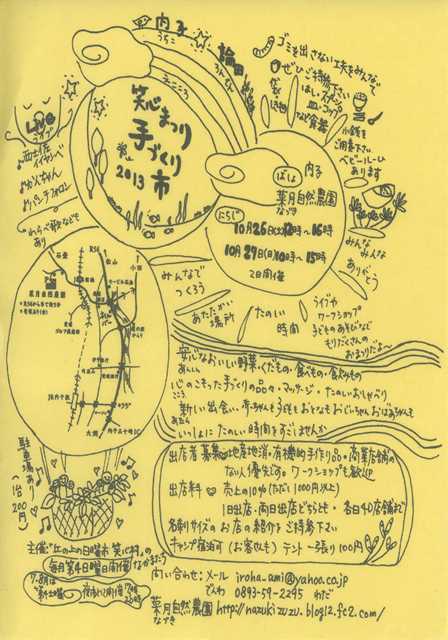 内子
うちこ
輪田
ゴミを出さない工夫をみんなで
ぜひご持参下さい
はし・スプーン
皿・コップ
など食器
小銭を
ご用意下さい
ベビールーム
あります
えごころ
笑心まつり
手づくり市
2013
LIVE
ライブ
わらべ歌なども
あり
ばしょ
内子
葉月自然農園
なづき
にちじ
10月26日(土)12時〜16時
10月27日(日)10時〜15時
2日開催
みんな
みんな
ありがとう
みんなで
つくろう
あたたかい
場所
たのしい
時間
ライブや
ワークショップ
子どものあそびなど
もりだくさんの
おまつりだよ〜
石畳
松山
小田
葉月自然農園
大洲
駐車場あり
(1台
200円)
安心なおいしい野菜・くだもの・食べもの・飲みもの
あんしん
心のこもった手づくりの品々・マッサージ・たのしいおしゃべり
こころ
新しい出会い・赤ちゃんも子どももおとなもおじいちゃんおばあちゃんも
いっしょにたのしい時間をすごしませんか
出店者募集 地産地消・有機的手作り品・商業店舗の
ない人優先です。ワークショップも歓迎
出店料 売上の10%(ただし1000円以上)
1日出店・両日出店どちらも・各日40店舗まで
名刺サイズのお店の紹介をご持参下さい
キャンプ宿泊可(お客さんも) テント一張り100円
主催:"丘の上の日曜市 笑心市"の
毎月第4日曜日開催 なかまたち
7・8月は
夜市開催
問い合わせ:メール iroha_ami@yahoo.co.jp
でんわ 0893-59-2295 わだ
葉月自然農園 http://nazukizuzu.blog12.fc2.com/
なづき